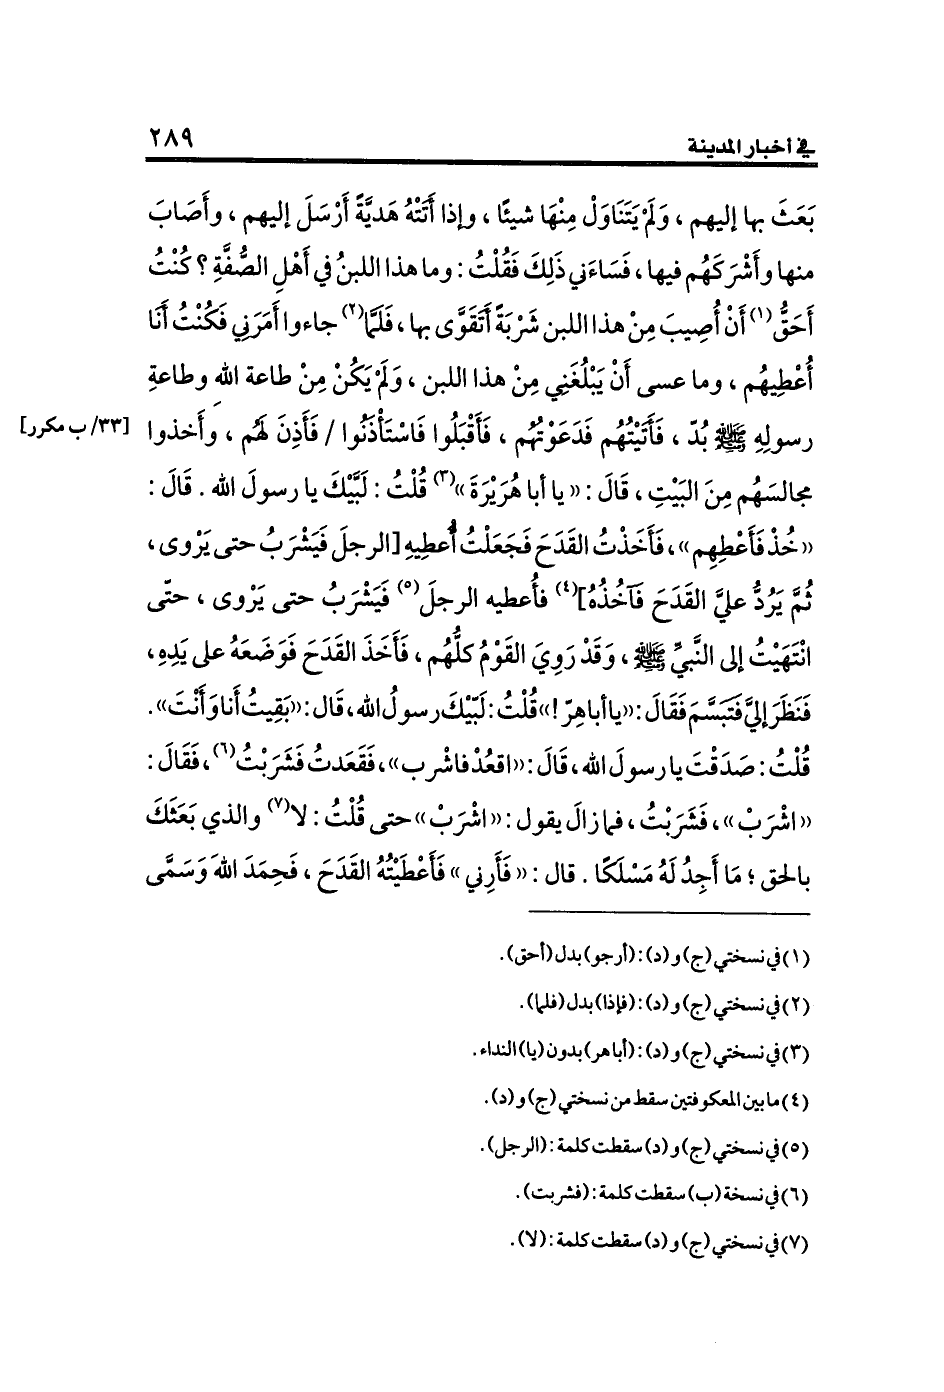 في أخبار المدينة ٢٨٩
بَعَثَ بها إليهم ، وَلَمْ يَتَنَاوَلْ مِنْهَا شيئًا ، وإذا أَتَتْهُ هَدِيَّةً أَرْسَلَ إليهم ، وأَصَابَ
منها وأَشْرَكَهُم فيها ، فَسَاءَني ذَلِكَ فَقُلْتُ : وما هذا اللبنُ في أَهْلِ الصُّفَّةِ ؟ كُنْتُ
أَحَقُّ (١) أَنْ أُصِيبَ مِنْ هذا اللبن شَرْبَةً أَتَقَوَّى بها ، فَلَمَّا (٢) جاءوا أَمَرَني فَكُنْتُ أَنَا
أُعْطِيهُم ، وما عسى أَنْ يَبْلُغَنِي مِنْ هذا اللبن ، وَلَمْ يَكُنْ مِنْ طاعة الله وطاعةِ
رسولِهِ ﷺ بُدّ ، فَأَتَيْتُهُم فَدَعَوْتُهُم ، فَأَقْبَلُوا فَاسْتَأْذَنُوا / فَأَذِنَ لَهُم ، وأَخذوا [٣٣/ ب مكرر]
مجالسَهُم مِنَ البَيْتِ ، قَالَ : « يا أبا هُرَيْرَةَ » (٣) قُلْتُ : لَبَّيْكَ يا رسولَ الله . قَالَ :
« خُذْ فَأَعْطِهِم » ، فَأَخَذْتُ القَدَحَ فَجَعَلْتُ أُعطِيهِ [الرجلَ فَيَشْرَبُ حتى يَرْوى ،
ثُمَّ يَرُدُّ عليَّ القَدَحَ فَآخُذُهُ] (٤) فأُعطيه الرجلَ (٥) فَيَشْرَبُ حتى يَرْوى ، حتّى
انْتَهَيْتُ إلى النَّبيِّ ﷺ ، وَقَدْ رَوِيَ القَوْمُ كلُّهُم ، فَأَخَذَ القَدَحَ فَوَضَعَهُ على يَدِهِ ،
فَنَظَرَ إليَّ فَتَبَسَّمَ فَقَالَ : «يا أباهِرّ !» قُلْتُ : لَبَّيْكَ رسولُ الله ، قَال : «بَقِيتُ أنا وَأَنْتَ» .
قُلْتُ : صَدَقْتَ يا رسولَ الله ، قَالَ : «اقعُدْ فاشرب» ، فَقَعَدتُ فَشَرَبْتُ (٦) ، فَقَالَ :
« اشْرَبْ » ، فَشَرَبْتُ ، فما زالَ يقول : « اشْرَبْ » حتى قُلْتُ : لا (٧) والذي بَعَثَكَ
بالحق ؛ مَا أَجِدُ لَهُ مَسْلَكًا . قال : « فَأَرِني » فَأَعْطَيْتُهُ القَدَحَ ، فَحِمَدَ اللهَ وَسَمَّى
(١) في نسختي (ج) و (د) : (أرجو) بدل (أحق) .
(٢) في نسختي (ج) و (د) : (فإذا) بدل (فلما) .
(٣) في نسختي (ج) و (د) : (أباهر) بدون (يا) النداء .
(٤) ما بين المعكوفتين سقط من نسختي (ج) و (د) .
(٥) في نسختي (ج) و (د) سقطت كلمة : (الرجل) .
(٦) في نسخة (ب) سقطت كلمة : (فشربت) .
(٧) في نسختي (ج) و (د) سقطت كلمة : (لا) .